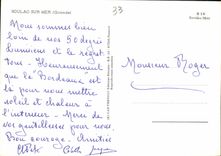 SOULAC SUR MER (Gironde)
33
Nous sommes bien
loin de nos 30 degrés
Lumineux et le regret
tons - Heureusement
que le Bordeaux est
là pour nous mettre
soleil et chaleur à
l'intérieur - Merci de
vos gentillesses pour nous.
Bon courage. Amitiés
Monsieur Roger